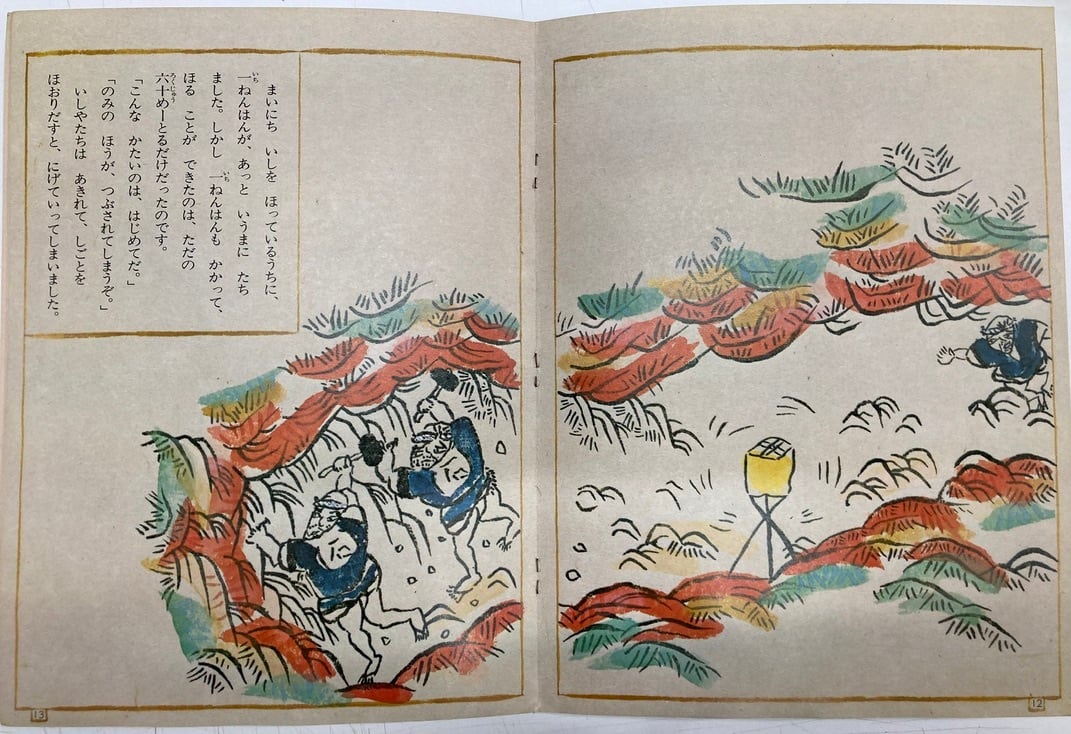 まいにち いしを ほっているうちに、
一ねんはんが、あっと いうまに たち
ました。しかし 一ねんはんも かかって、
ほる ことが できたのは、ただの
六十めーとるだけだったのです。
「こんな かたいのは、はじめてだ。」
「のみの ほうが、つぶされてしまうぞ。」
いしやたちは あきれて、しごとを
ほおりだすと、にげていってしまいました。
12
13